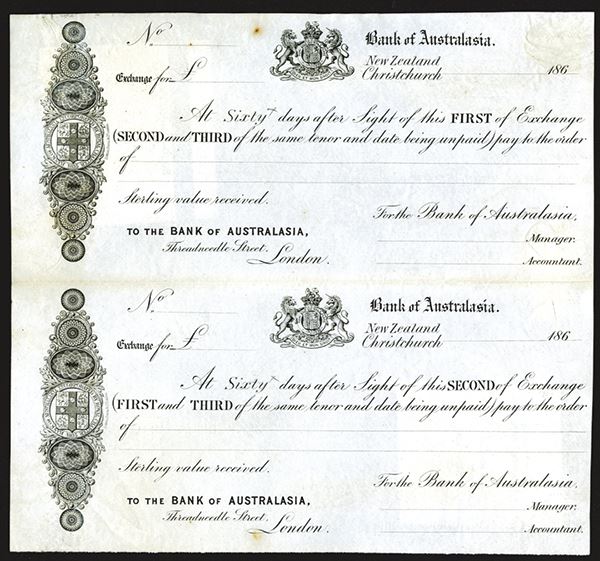 No
Bank of Australasia.
New Zealand
Exchange for £
Christchurch 186
At Sixty days after Sight of this FIRST of Exchange
(SECOND and THIRD of the same tenor and date being unpaid) pay to the order
of
Sterling value received.
For the Bank of Australasia,
TO THE BANK OF AUSTRALASIA,
Manager.
Threadneedle Street,
London.
Accountant.
No
Bank of Australasia.
New Zealand
Exchange for £
Christchurch 186
At Sixty days after Sight of this SECOND of Exchange
(FIRST and THIRD of the same tenor and date being unpaid) pay to the order
of
Sterling value received.
For the Bank of Australasia,
TO THE BANK OF AUSTRALASIA,
Manager.
Threadneedle Street,
London.
Accountant.